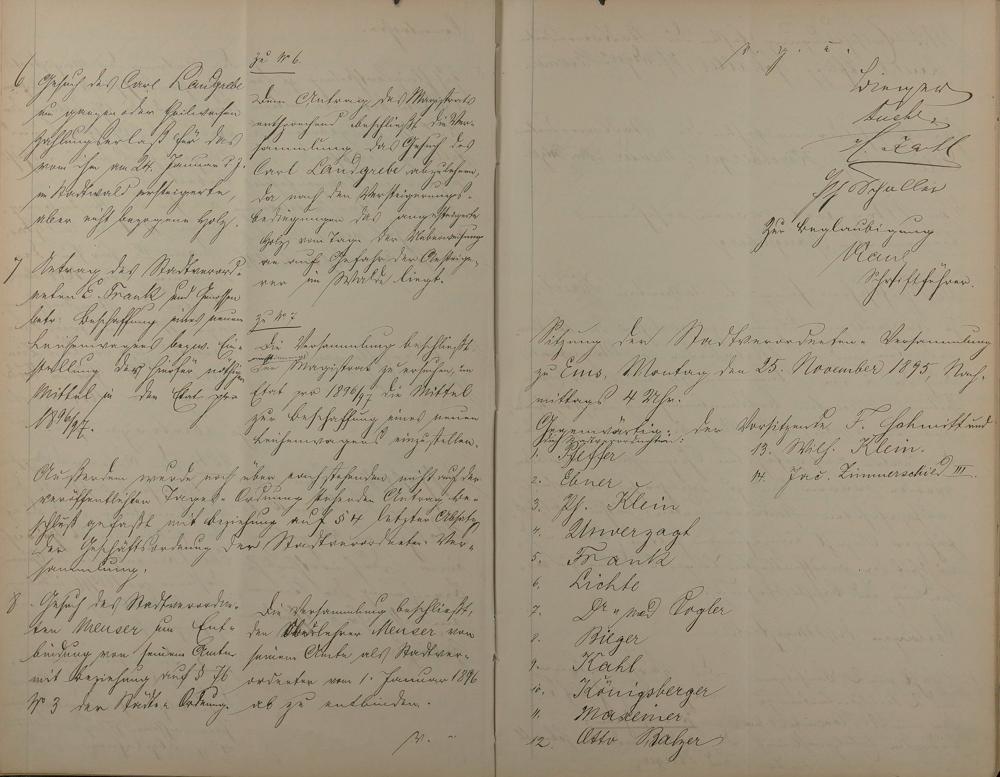 6. Gesuch des Carl Landgrebe
um ganzen oder theilweisen
Zahlungserlaß für das
von ihm am 24. Januar d. J.
im Stadtwald ersteigerte,
aber nicht bezogene Holz.
zu № 6.
Dem Antrag des Magistrats
entsprechend beschließt die Ver-
sammlung, das Gesuch des
Carl Landgrebe abzulehnen,
da nach den Versteigerungs-
bedingungen das angesteigerte
Holz vom Tage der Ueberweisung
an auf Gefahr der Ansteige-
rer im Walde liegt.
7 Antrag des Stadtverord-
neten E. Frank und Genossen
betr. Beschaffung eines neuen
Leichenwagens bezw. Ein-
stellung der hierfür nöthigen
Mittel in den Etat pro
1896/97.
zu № 7
Die Versammlung beschließt
den Magistrat zu ersuchen, im
Etat pro 1896/97 die Mittel
zur Beschaffung eines neuen
Leichenwagens einzustellen.
Außerdem wurde noch über nachstehenden nicht auf der
veröffentlichten Tages-Ordnung stehenden Antrag Be-
schluß gefaßt mit Beziehung auf § 4 letzter Absatz
der Geschäftsordnung der Stadtverordneten-Ver-
sammlung.
8 Gesuch des Stadtverordne-
ten Menser um Ent-
bindung von seinem Amte
mit Beziehung auf § 76
№ 3 der Städte-Ordnung.
Die Versammlung beschließt,
den Oberlehrer Menser von
seinem Amte als Stadtver-
ordneter vom 1. Januar 1896
ab zu entbinden.
v. g. u.
H. Kahl
Schuller
Zur Beglaubigung
Kaul
Schriftführer.
Sitzung der Stadtverordneten-Versammlung
zu Ems, Montag den 25. November 1895, Nach-
mittags 4 Uhr.
Gegenwärtig: der Vorsitzende F. Schmitt und
die Stadtverordneten:
1. Pfeffer
2. Ebner
3. Ph. Klein
4. Unverzagt
5. Frank
6. Lichte
7. Dr. med Vogler
8. Bieger
9. Kahl
10. Königsberger
11. Maxeiner
12 Otto Balzer
13. Wilh. Klein.
14. Jac. Zimmerschied III.